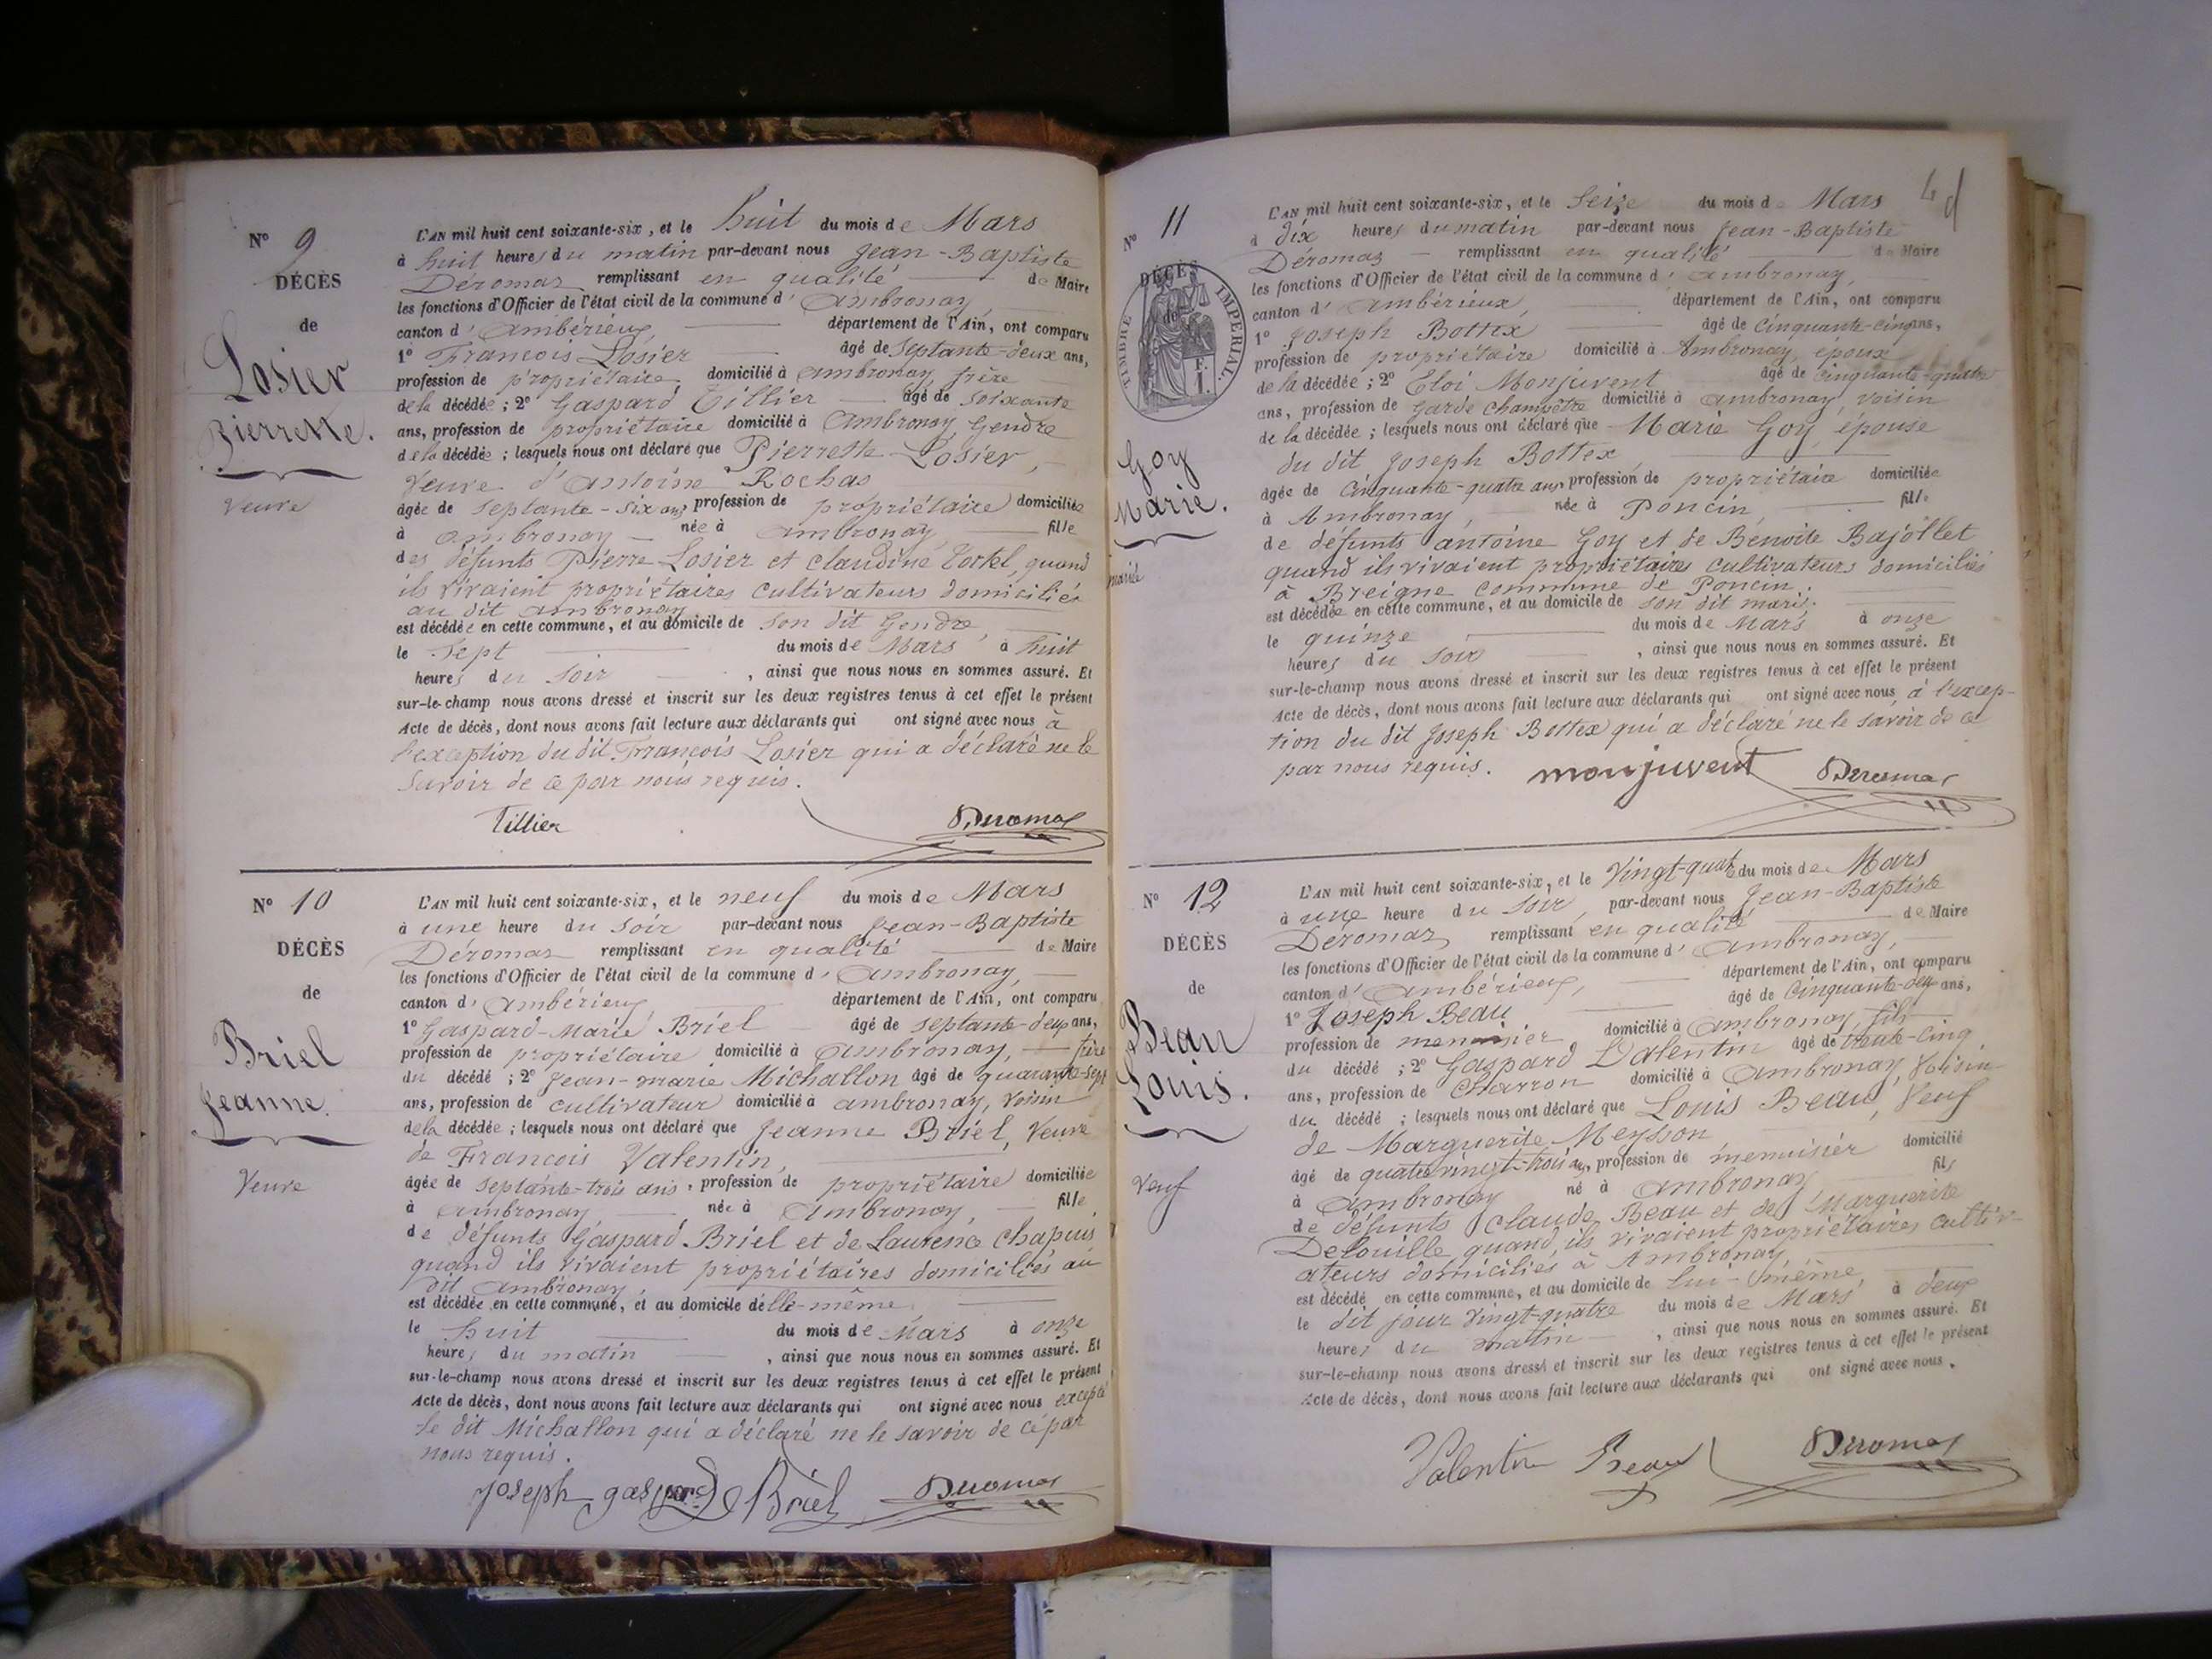 N° 9
DÉCÈS
de
Losier
Pierrette.
Veuve
L'AN mil huit cent soixante-six, et le huit du mois de Mars
à huit heures du matin par-devant nous Jean-Baptiste
Déromas remplissant en qualité de Maire
les fonctions d'Officier de l'état civil de la commune d'Ambronay,
canton d'Ambérieux, département de l'Ain, ont comparu
1° François Losier âgé de septante-deux ans,
profession de propriétaire domicilié à Ambronay, frère
de la décédée ; 2° Gaspard Tillier âgé de soixante
ans, profession de propriétaire domicilié à Ambronay, Gendre
de la décédée ; lesquels nous ont déclaré que Pierrette Losier,
Veuve d'Antoine Rochas
âgée de septante-six ans, profession de propriétaire domiciliée
à Ambronay née à Ambronay, fille
des défunts Pierre Losier et Claudine Tortel, quand
ils vivaient propriétaires cultivateurs domiciliés
au dit Ambronay
est décédée en cette commune, et au domicile de son dit Gendre,
le sept du mois de Mars à huit
heures du soir, ainsi que nous nous en sommes assuré. Et
sur-le-champ nous avons dressé et inscrit sur les deux registres tenus à cet effet le présent
Acte de décès, dont nous avons fait lecture aux déclarants qui ont signé avec nous à
l'exception du dit François Losier qui a déclaré ne le
savoir de ce par nous requis.
Tillier Deromas
N° 10
DÉCÈS
de
Briel
Jeanne.
Veuve
L'AN mil huit cent soixante-six, et le neuf du mois de Mars
à une heure du soir par-devant nous Jean-Baptiste
Déromas remplissant en qualité de Maire
les fonctions d'Officier de l'état civil de la commune d'Ambronay,
canton d'Ambérieux département de l'Ain, ont comparu
1° Gaspard-Marie Briel âgé de septante-deux ans,
profession de propriétaire domicilié à Ambronay, frère
du décédé ; 2° Jean-marie Michallon âgé de quarante-sept
ans, profession de cultivateur domicilié à ambronay, voisin
de la décédée ; lesquels nous ont déclaré que Jeanne Briel, Veuve
de François Valentin,
âgée de septante-trois ans, profession de propriétaire domiciliée
à Ambronay née à Ambronay, fille
de défunts Gaspard Briel et de Laurence Chapuis
quand ils vivaient propriétaires domiciliés au
dit Ambronay,
est décédée en cette commune, et au domicile d'elle-même
le huit du mois de Mars à onze
heures du matin, ainsi que nous nous en sommes assuré. Et
sur-le-champ nous avons dressé et inscrit sur les deux registres tenus à cet effet le présent
Acte de décès, dont nous avons fait lecture aux déclarants qui ont signé avec nous excepté
le dit Michallon qui a déclaré ne le savoir de ce par
nous requis.
Joseph gaspard Briel Deromas
4
N° 11
DÉCÈS
de
TIMBRE IMPERIAL.
F.
1.
Goy
Marie.
mariée
L'AN mil huit cent soixante-six, et le Seize du mois de Mars
à dix heures du matin par-devant nous Jean-Baptiste
Déromas remplissant en qualité de Maire
les fonctions d'Officier de l'état civil de la commune d'Ambronay,
canton d'Ambérieux, département de l'Ain, ont comparu
1° Joseph Bottex âgé de Cinquante-cinq ans,
profession de propriétaire domicilié à Ambronay, époux
de la décédée ; 2° Eloi Monjuvent âgé de cinquante-quatre
ans, profession de Garde Champêtre domicilié à Ambronay, voisin
de la décédée ; lesquels nous ont déclaré que Marie Goy, épouse
du dit Joseph Bottex
âgée de Cinquante-quatre ans, profession de propriétaire domiciliée
à Ambronay, née à Poncin, fille
de défunts antoine Goy et de Benoite Bajollet
quand ils vivaient propriétaires cultivateurs domiciliés
à Breigne commune de Poncin.
est décédée en cette commune, et au domicile de son dit mari.
le quinze du mois de Mars à onze
heures du soir, ainsi que nous nous en sommes assuré. Et
sur-le-champ nous avons dressé et inscrit sur les deux registres tenus à cet effet le présent
Acte de décès, dont nous avons fait lecture aux déclarants qui ont signé avec nous à l'excep-
tion du dit Joseph Bottex qui a déclaré ne le savoir de ce
par nous requis. monjuvent Deromas
N° 12
DÉCÈS
de
Beau
Louis.
Veuf
L'AN mil huit cent soixante-six, et le Vingt-quatre du mois de Mars
à une heure du soir, par-devant nous Jean-Baptiste
Déromas remplissant en qualité de Maire
les fonctions d'Officier de l'état civil de la commune d'Ambronay,
canton d'Ambérieux, département de l'Ain, ont comparu
1° Joseph Beau âgé de Cinquante-deux ans,
profession de menuisier domicilié à Ambronay, fils
du décédé ; 2° Gaspard Valentin âgé de trente-cinq
ans, profession de Charron domicilié à Ambronay, Voisin
du décédé ; lesquels nous ont déclaré que Louis Beau, Veuf
de Marguerite Meysson
âgé de quatrevingt-trois ans, profession de menuisier domicilié
à Ambronay né à Ambronay, fils
de défunts Claude Beau et de Marguerite
Delouille quand ils vivaient propriétaires cultiv-
ateurs domiciliés à Ambronay,
est décédé en cette commune, et au domicile de lui-même,
le dit jour vingt-quatre du mois de Mars à deux
heures du matin, ainsi que nous nous en sommes assuré. Et
sur-le-champ nous avons dressé et inscrit sur les deux registres tenus à cet effet le présent
Acte de décès, dont nous avons fait lecture aux déclarants qui ont signé avec nous.
Valentin Beau Deromas